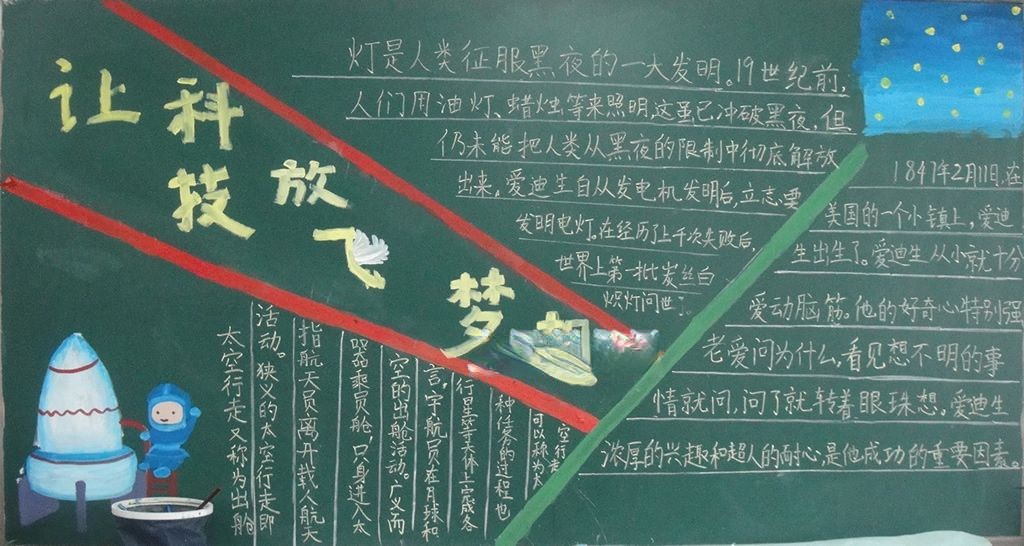 让科
技放飞
梦想
灯是人类征服黑夜的一大发明。19世纪前,
人们用油灯、蜡烛等来照明,这虽已冲破黑夜,但
仍未能把人类从黑夜的限制中彻底解放
出来。爱迪生自从发电机发明后,立志要
发明电灯。在经历上千次失败后,
世界上第一批炭丝白
炽灯问世了。
1847年2月11日,在
美国的一个小镇上,爱迪
生出生了。爱迪生从小就十分
爱动脑筋。他的好奇心特别强
老爱问为什么,看见想不明的事
情就问,问了就转着眼珠想。爱迪生
浓厚的兴趣和超人的耐心,是他成功的重要因素。
太空行走又称为出舱
活动。狭义的太空行走即
指航天员离开载人航天
器乘员舱,只身进入太
空的出舱活动。广义而
言,宇航员在月球和
行星等天体上完成各
种任务的过程也
可以称为太
空行走